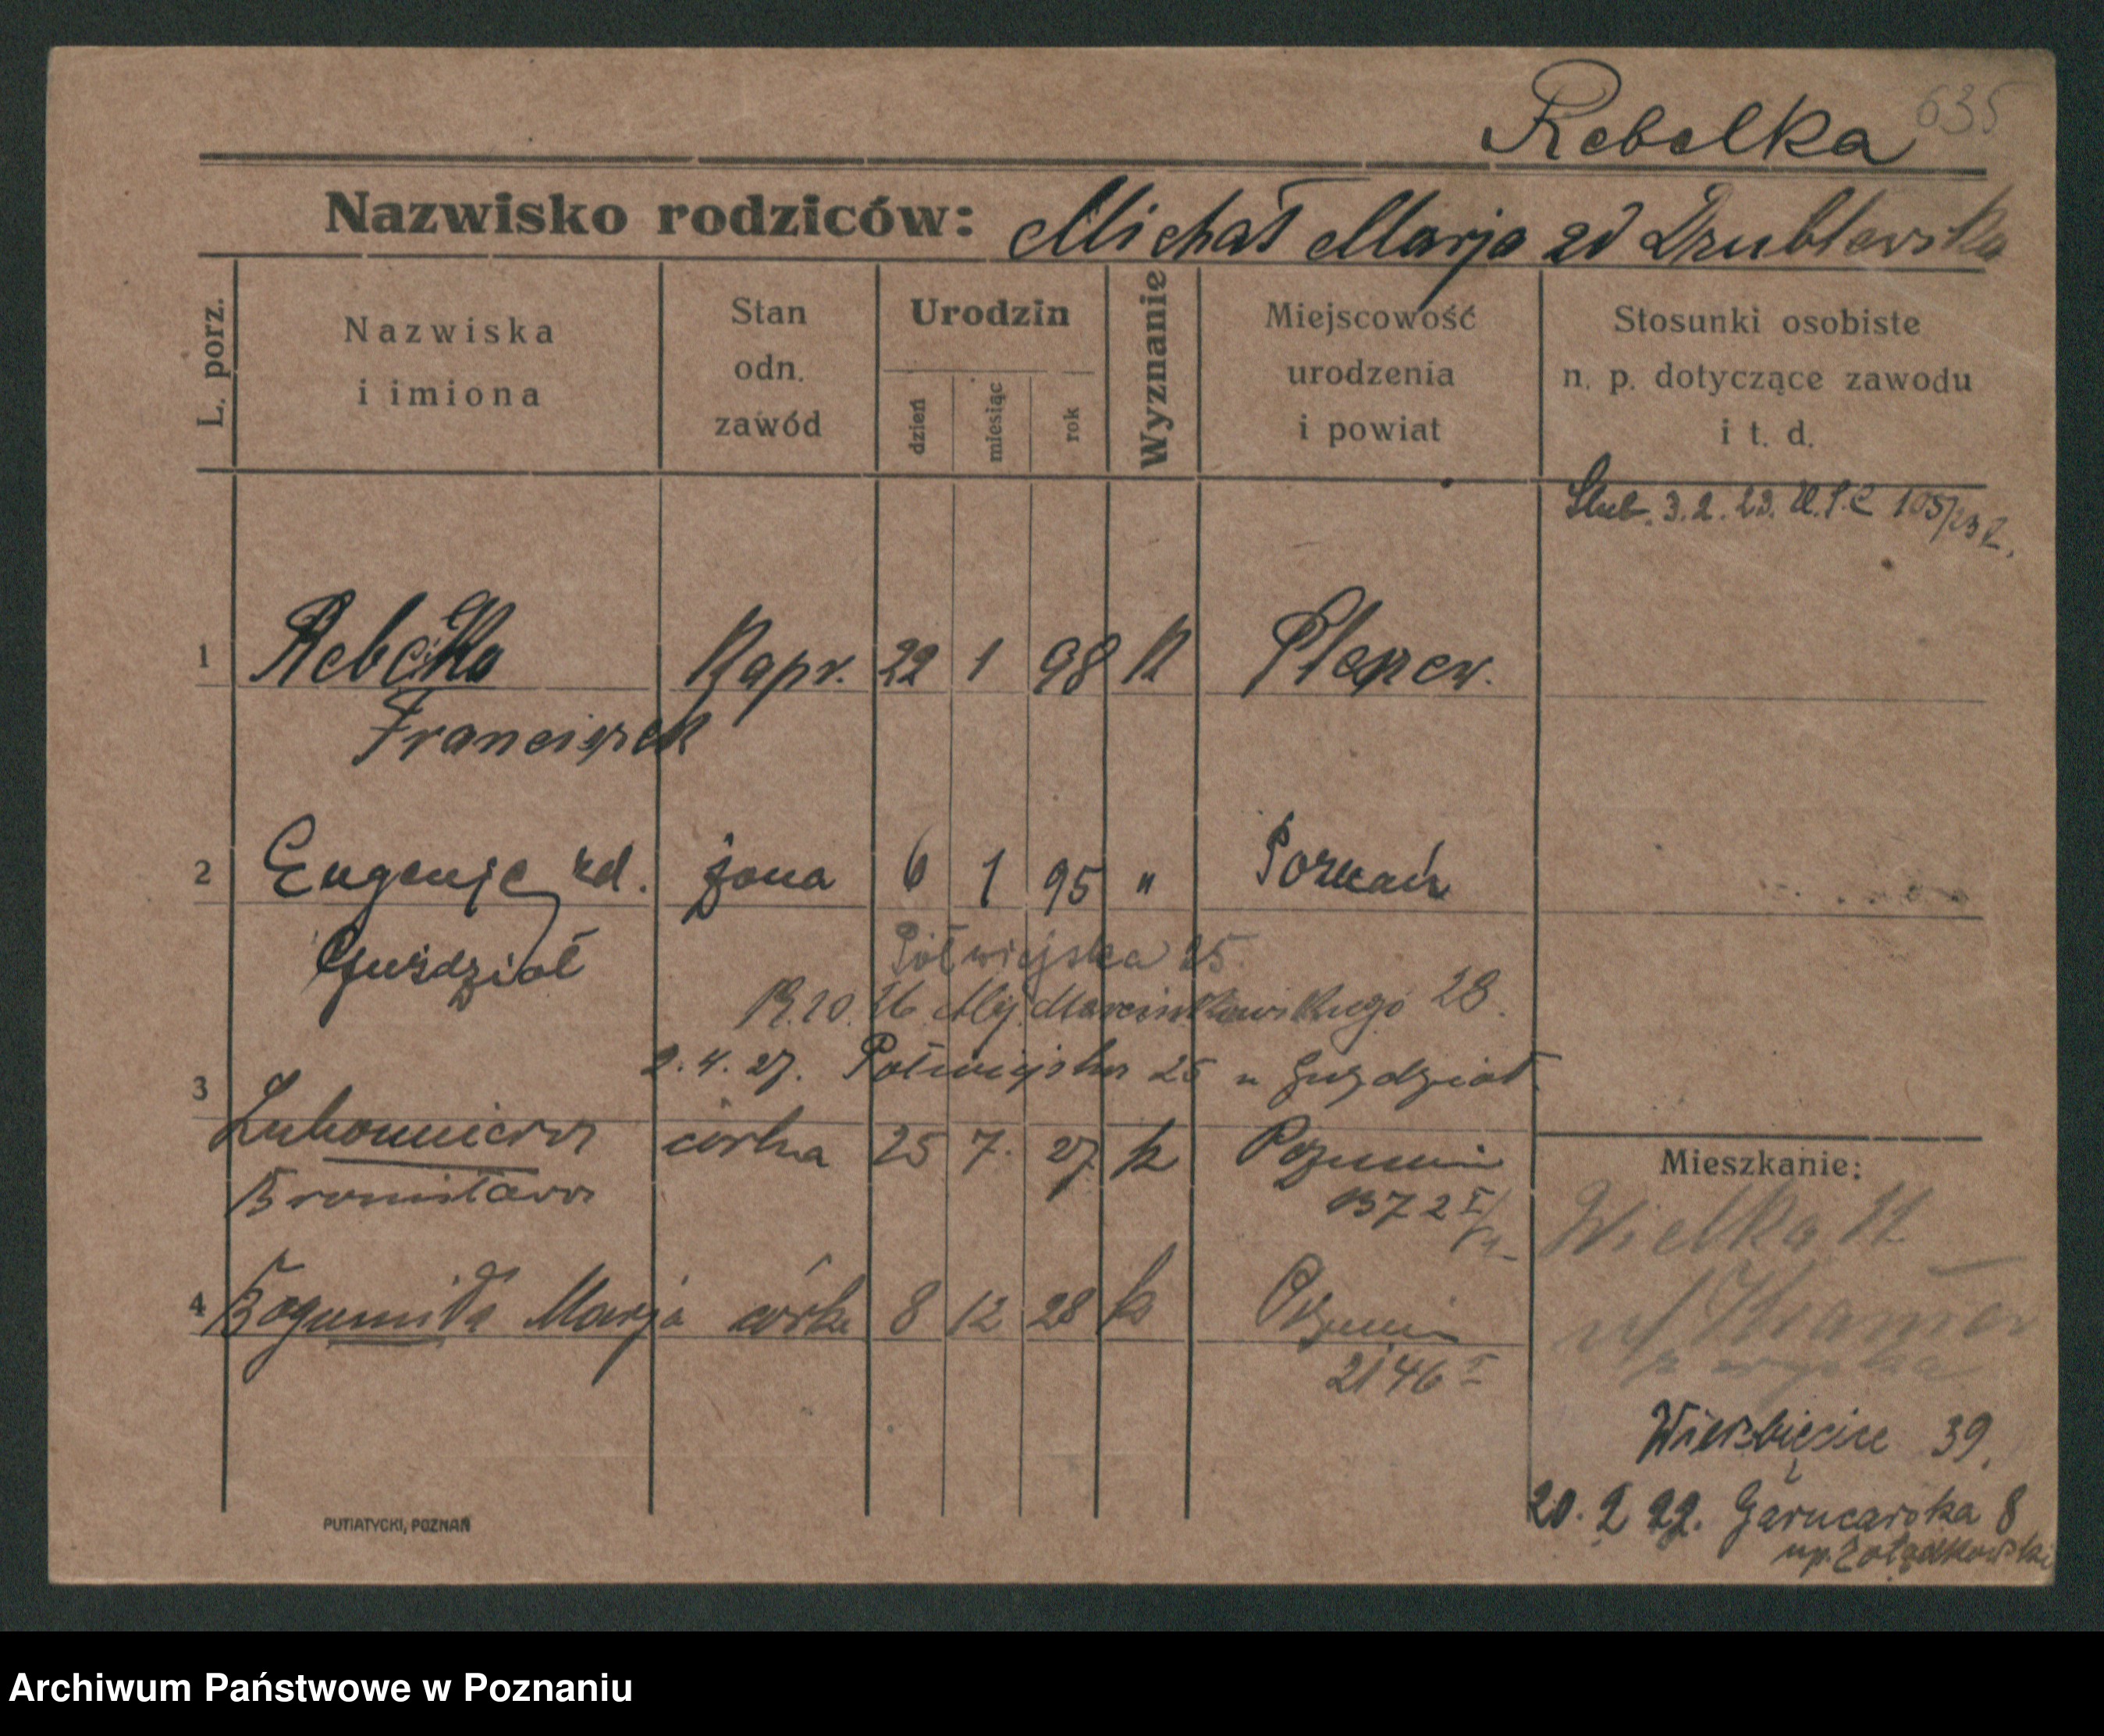 635
Rebelka
Nazwisko rodziców: Michał Marja zd Drublewska
L. porz.
Nazwiska
i imiona
Stan
odn.
zawód
Urodzin
dzień
miesiąc
rok
Wyznanie
Miejscowość
urodzenia
i powiat
Stosunki osobiste
n. p. dotyczące zawodu
i t. d.
Slub. 3.2.23. U.S.C 105/23
1 Rebelka Kapr. 22 1 98 K Pleszew.
Franciszek
2 Eugenje zd. żona 6 1 95 " Poznań
Guździoł
Półwiejska 25
19.10.26 Alej Marcinkowskiego 28.
2.4.27. Półwiejska 25 u Guździoł
3
Lubomiera córka 25 7. 27 k Poznań
Bronisława
1372 I/
4 Bogumiła Marja córka 8 12 28 k Poznań
2146 I
Mieszkanie:
Wielka
Wierzbięcice 39.
20. 2 22. Garncarska 8
up. Żołądkowski
PUTIATYCKI, POZNAŃ
Archiwum Państwowe w Poznaniu